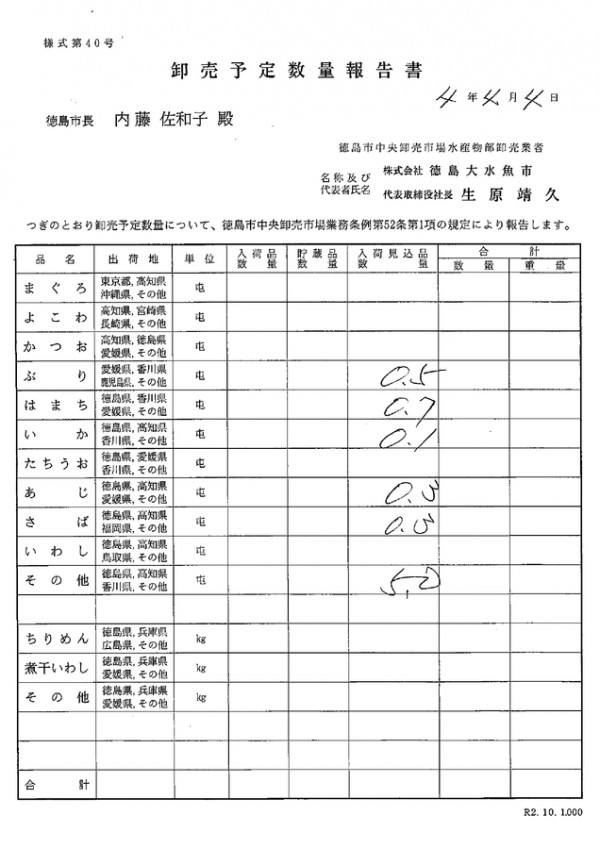 様式第40号
卸売予定数量報告書
4年4月4日
徳島市長 内藤 佐和子 殿
徳島市中央卸売市場水産物部卸売業者
名称及び 株式会社 徳島大水魚市
代表者氏名 代表取締役社長 生原靖久
つぎのとおり卸売予定数量について、徳島市中央卸売市場業務条例第52条第1項の規定により報告します。
品名 出荷地 単位 入荷品数量 貯蔵品数量 入荷見込品数量 合計
数量 重量
まぐろ 東京都, 高知県 屯
沖縄県, その他
よこわ 高知県, 宮崎県 屯
長崎県, その他
かつお 高知県, 徳島県 屯
愛媛県, その他
ぶり 愛媛県, 香川県 屯 0.5
鹿児島県, その他
はまち 徳島県, 香川県 屯 0.7
愛媛県, その他
いか 徳島県, 高知県 屯 0.1
香川県, その他
たちうお 徳島県, 愛媛県 屯
香川県, その他
あじ 徳島県, 高知県 屯 0.3
愛媛県, その他
さば 徳島県, 高知県 屯 0.3
福岡県, その他
いわし 徳島県, 高知県 屯
鳥取県, その他
その他 徳島県, 高知県 屯
香川県, その他
ちりめん 徳島県, 兵庫県 kg
広島県, その他
煮干いわし 徳島県, 兵庫県 kg
愛媛県, その他
その他 徳島県, 兵庫県 kg
愛媛県, その他
合計
R2. 10. 1.000